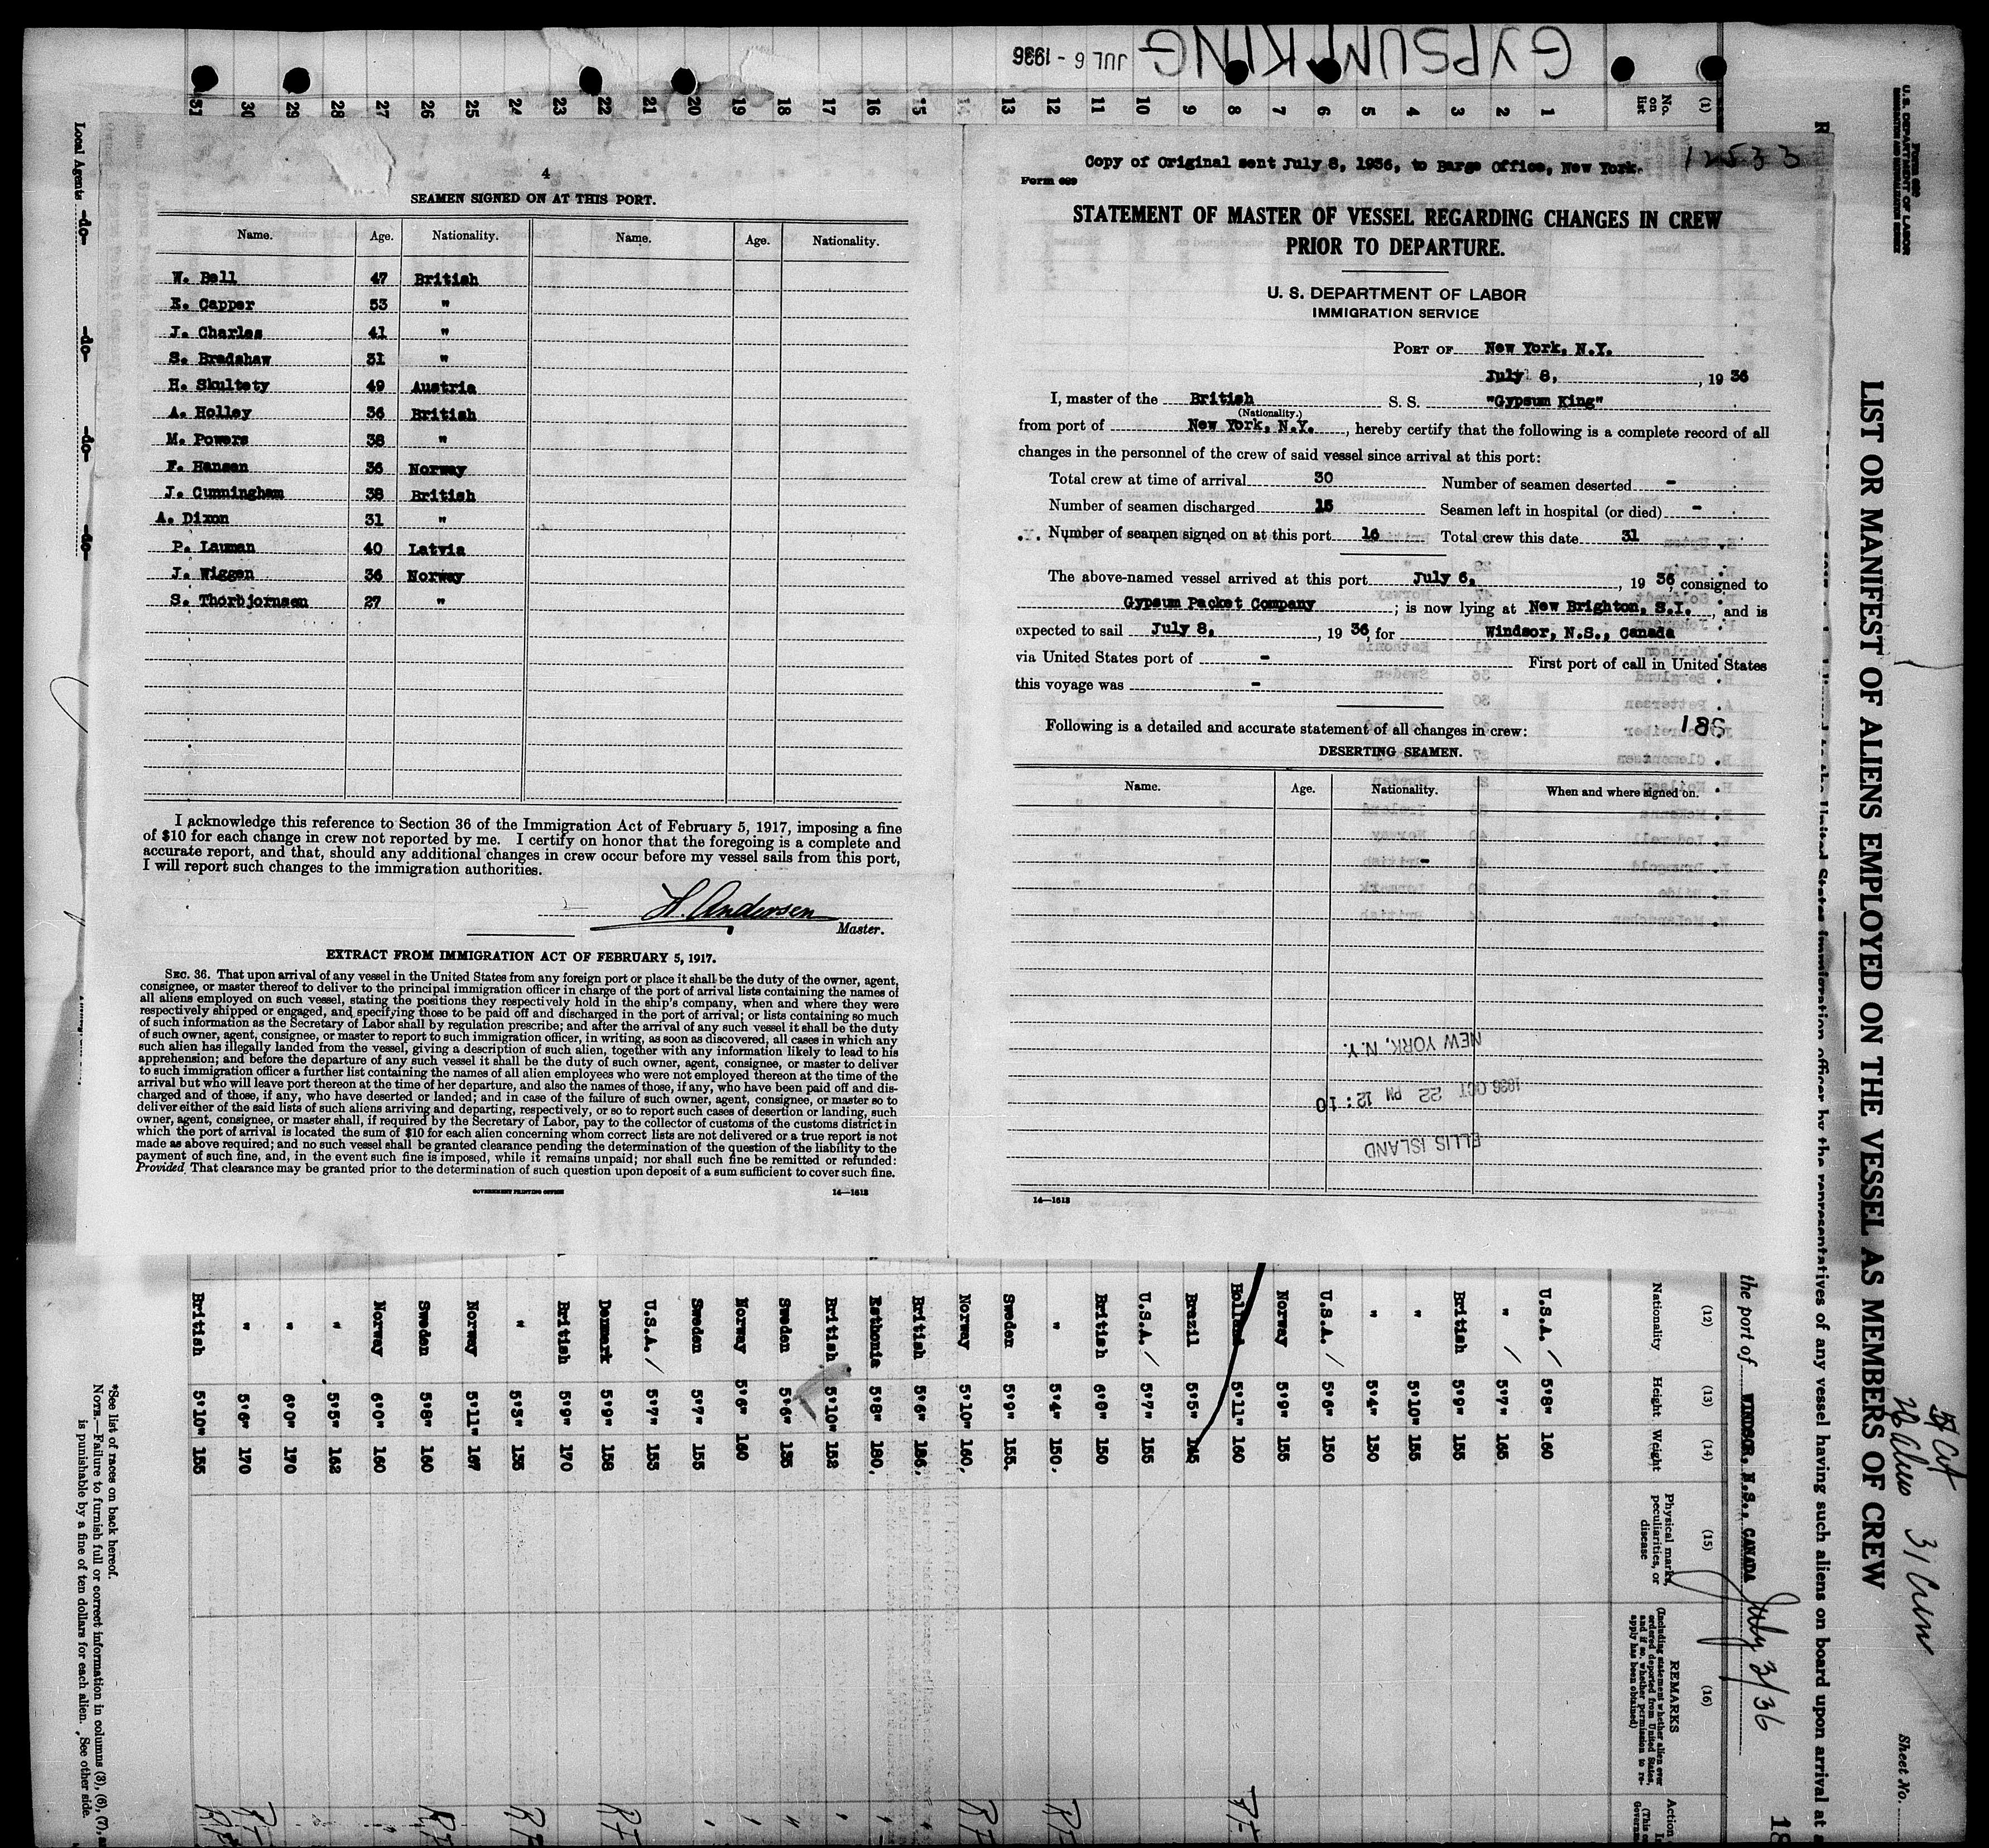 GYPSUM KING
JUL 6 - 1936
(1)
No. on list
1 2 3 4 5 6 7 8 9 10 11 12 13 14 15 16 17 18 19 20 21 22 23 24 25 26 27 28 29 30 31
Local Agents -do- -do- -do- -do-
4
SEAMEN SIGNED ON AT THIS PORT.
Name. Age. Nationality. Name. Age. Nationality.
W. Bell 47 British
E. Capper 53 "
J. Charles 41 "
S. Bradshaw 31 "
H. Skultety 49 Austria
A. Holley 36 British
M. Powers 38 "
F. Hansen 36 Norway
J. Cunningham 38 British
A. Dixon 31 "
P. Lauman 40 Latvia
J. Wiggen 36 Norway
S. Thorbjornsen 27 "
I acknowledge this reference to Section 36 of the Immigration Act of February 5, 1917, imposing a fine
of $10 for each change in crew not reported by me. I certify on honor that the foregoing is a complete and
accurate report, and that, should any additional changes in crew occur before my vessel sails from this port,
I will report such changes to the immigration authorities.
H. Andersen
Master.
EXTRACT FROM IMMIGRATION ACT OF FEBRUARY 5, 1917.
SEC. 36. That upon arrival of any vessel in the United States from any foreign port or place it shall be the duty of the owner, agent,
consignee, or master thereof to deliver to the principal immigration officer in charge of the port of arrival lists containing the names of
all aliens employed on such vessel, stating the positions they respectively hold in the ship's company, when and where they were
respectively shipped or engaged, and specifying those to be paid off and discharged in the port of arrival; or lists containing so much
of such information as the Secretary of Labor shall by regulation prescribe; and after the arrival of any such vessel it shall be the duty
of such owner, agent, consignee, or master to report to such immigration officer, in writing, as soon as discovered, all cases in which any
such alien has illegally landed from the vessel, giving a description of such alien, together with any information likely to lead to his
apprehension; and before the departure of any such vessel it shall be the duty of such owner, agent, consignee, or master to deliver
to such immigration officer a further list containing the names of all alien employees who were not employed thereon at the time of the
arrival but who will leave port thereon at the time of her departure, and also the names of those, if any, who have been paid off and dis-
charged and of those, if any, who have deserted or landed; and in case of the failure of such owner, agent, consignee, or master so to
deliver either of the said lists of such aliens arriving and departing, respectively, or so to report such cases of desertion or landing, such
owner, agent, consignee, or master shall, if required by the Secretary of Labor, pay to the collector of customs of the customs district in
which the port of arrival is located the sum of $10 for each alien concerning whom correct lists are not delivered or a true report is not
made as above required; and no such vessel shall be granted clearance pending the determination of the question of the liability to the
payment of such fine, and, in the event such fine is imposed, while it remains unpaid; nor shall such fine be remitted or refunded:
Provided That clearance may be granted prior to the determination of such question upon deposit of a sum sufficient to cover such fine.
GOVERNMENT PRINTING OFFICE 14—1613
Copy of Original sent July 8, 1936, to Barge Office, New York.
12533
Form 689
STATEMENT OF MASTER OF VESSEL REGARDING CHANGES IN CREW
PRIOR TO DEPARTURE.
U. S. DEPARTMENT OF LABOR
IMMIGRATION SERVICE
PORT OF New York, N.Y.
July 8, , 19 36
I, master of the British S. S. "Gypsum King"
(Nationality.)
from port of New York, N.Y. , hereby certify that the following is a complete record of all
changes in the personnel of the crew of said vessel since arrival at this port:
Total crew at time of arrival 30 Number of seamen deserted -
Number of seamen discharged 15 Seamen left in hospital (or died) -
Number of seamen signed on at this port 16 Total crew this date 31
The above-named vessel arrived at this port July 6, , 19 36, consigned to
Gypsum Packet Company ; is now lying at New Brighton, S.I. , and is
expected to sail July 8, , 19 36, for Windsor, N.S., Canada
via United States port of - First port of call in United States
this voyage was -
Following is a detailed and accurate statement of all changes in crew:
186
DESERTING SEAMEN.
Name. Age. Nationality. When and where signed on.
-
NEW YORK, N.Y.
1936 OCT 22 PM 12:10
ELLIS ISLAND
14—1613
Form 689
U. S. DEPARTMENT OF LABOR
LIST OR MANIFEST OF ALIENS EMPLOYED ON THE VESSEL AS MEMBERS OF CREW
31 Crew
Sheet No.
United States immigration officer by the representatives of any vessel having such aliens on board upon arrival at
the port of WINDSOR, N.S., CANADA July 3/36
18
(12) (13) (14) (15) (16)
Nationality Height Weight Physical marks, peculiarities, or disease REMARKS
(Including statement whether alien ever ordered deported from United States, and if so, whether permission to re-apply has been obtained)
U.S.A. / 5'8" 160
" / 5'7" 165
British 5'9" 155
" 5'10" 155
" 5'4" 130
U.S.A. / 5'6" 150
Norway 5'9" 155
Holland 5'11" 160
Brazil 5'5" 145
U.S.A. / 5'7" 155
British 6'0" 150
" 5'4" 150.
Sweden 5'9" 155.
Norway 5'10" 160,
British 5'6" 186,
Esthonia 5'8" 180,
British 5'10" 152
Sweden 5'6" 135
Norway 5'6" 160
Sweden 5'7" 155
U.S.A. / 5'7" 153
Denmark 5'9" 158
British 5'9" 170
" 5'3" 135
Norway 5'11" 167
Sweden 5'8" 160
Norway 6'0" 160
" 5'5" 162
" 6'0" 170
" 5'6" 170
British 5'10" 155
*See list of races on back hereof.
NOTE.—Failure to furnish full or correct information in columns (3), (6), (7),
is punishable by a fine of ten dollars for each alien. See other side.